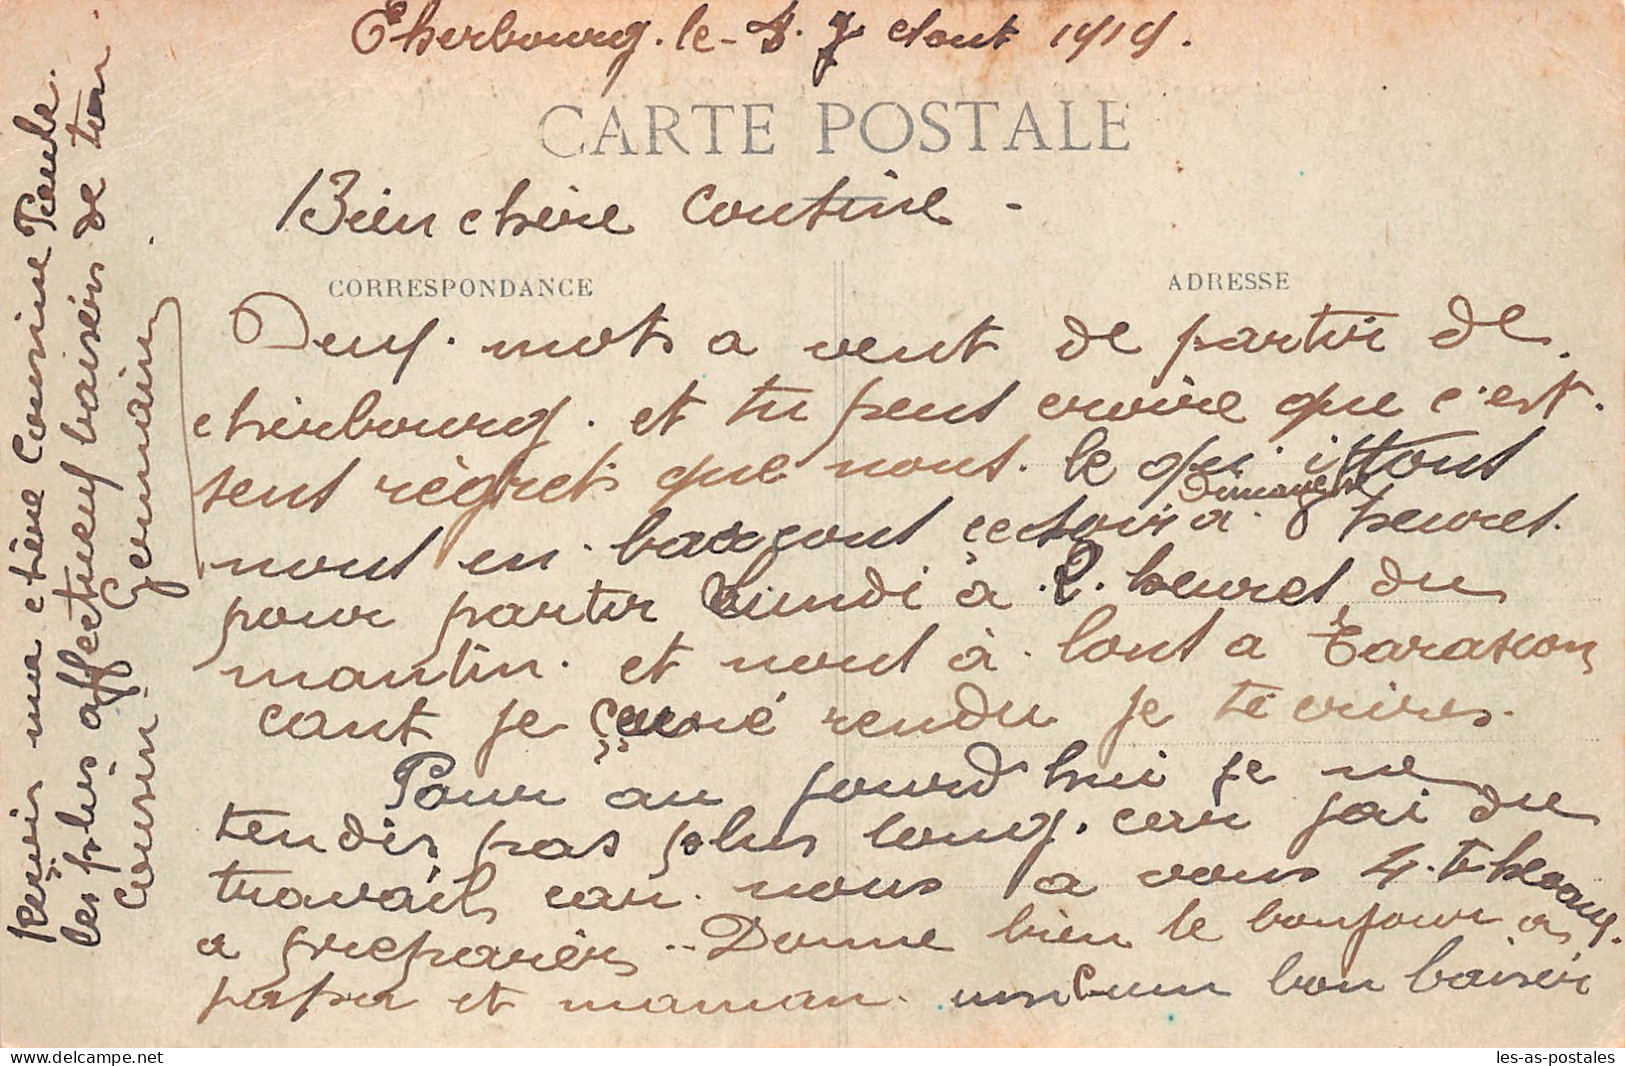 Cherbourg. le - 8. 7 Aout 1919.
CARTE POSTALE
Bien chère Cousine -
CORRESPONDANCE
ADRESSE
Deux. mots a vent de partir de
cherbourg. et tu peus croire que c'est.
sens règret que nous. le qui ittons
Dimanche
nous en. barçons ce soir a 8 heures.
pour partir Lundi à 2. heures du
mantin. et nous à. lons a Tarascon
cant je serré rendu je te crires.
Pour au jourd hui je ne
tendis pas plus long. car jai du
travails car. nous a vons 4. theaux.
a prepareir .. Donne bien le bonjour a
papa et maman. un bon baiseir
Reçois ma chère Cousine Paule.
les plus affectueux baiseirs de ton
cousin Germain.
delcampe.net
les-as-postales